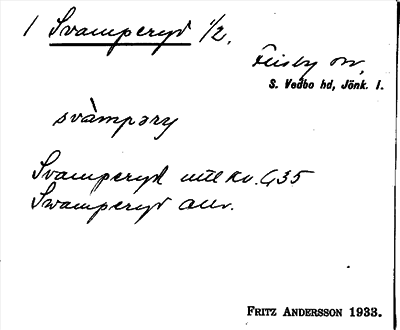 1 Svamperyd 1/2.
Flisby sn,
S. Vedbo hd, Jönk. l.
svàmpəry
Svamperyd utt Kv. G35
Svamperyd allv.
FRITZ ANDERSSON 1933.